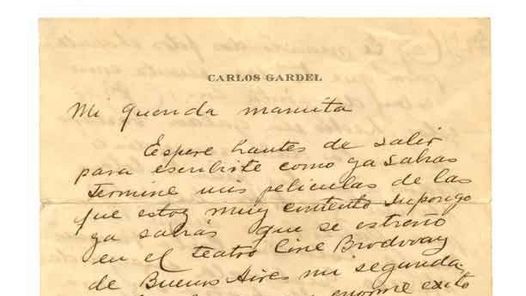 CARLOS GARDEL
Mi querida mamita
Espere hantes de salir
para escribirte como ya sabras
termine mis peliculas de las
que estoy muy contento supongo
ya sabrás que se estrenó
en el teatro Cine Brodway
de Buenos Aires mi segunda
enorme exito